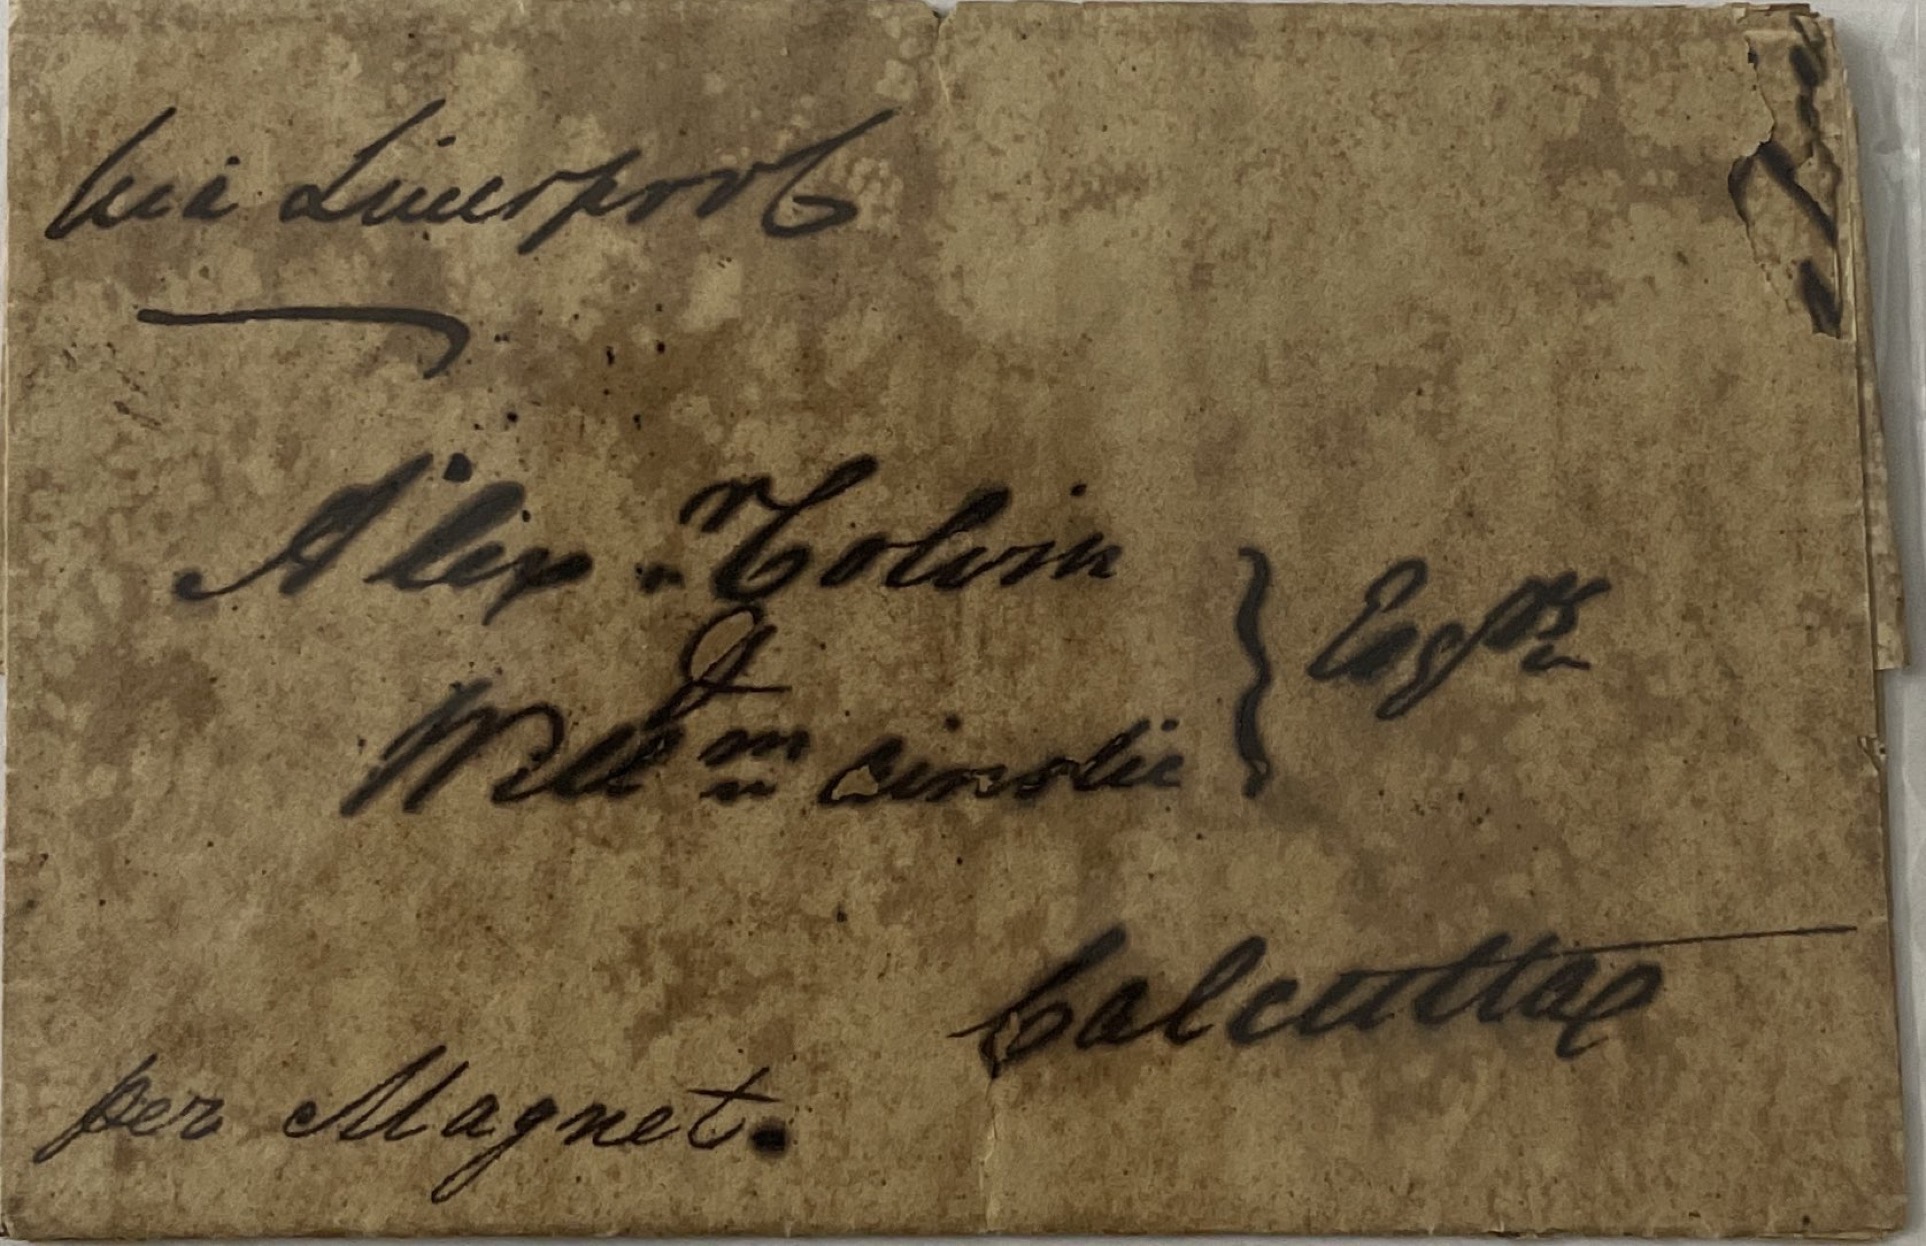 via Liverpool
Alexr Colvin
&
Willm Ainslie } Esqrs
Calcutta
per Magnet.